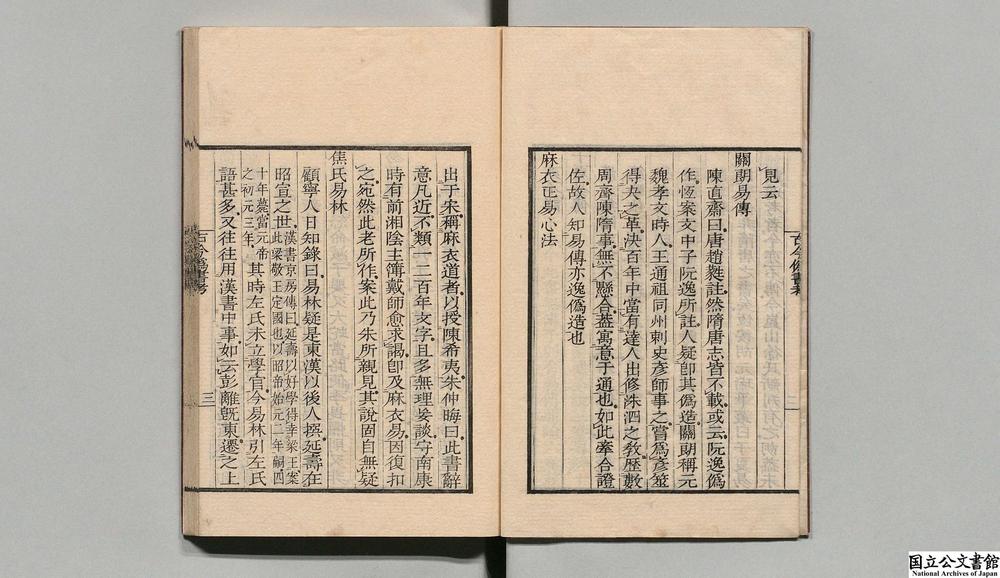 見云
關朗易傳
陳直齋曰唐趙蕤註然隋唐志皆不載或云阮逸僞
作恆案文中子阮逸所註人疑卽其僞造關朗稱元
魏孝文時人王通祖同州刺史彥師事之嘗爲彥筮
得夬之革決百年中當有達人出修洙泗之敎歷數
周齊陳隋事無不懸合葢寓意于通也如此牽合證
佐故人知易傳亦逸僞造也
麻衣正易心法
古今僞書考
三
出于宋稱麻衣道者以授陳希夷朱仲晦曰此書辭
意凡近不類一二百年文字且多無理妄談守南康
時有前湘陰主簿戴師愈求謁卽及麻衣易因復扣
之宛然此老所作案此乃朱所親見其說固自無疑
焦氏易林
顧寧人日知錄曰易林疑是東漢以後人撰延壽在
昭宣之世漢書京房傳曰延壽以好學得幸梁王案此梁敬王定國也以昭帝始元二年嗣四
十年薨當元帝之初元三年其時左氏未立學官今易林引左氏
語甚多又往往用漢書中事如云彭離旣東遷之上
古今僞書考
三
国立公文書館
National Archives of Japan